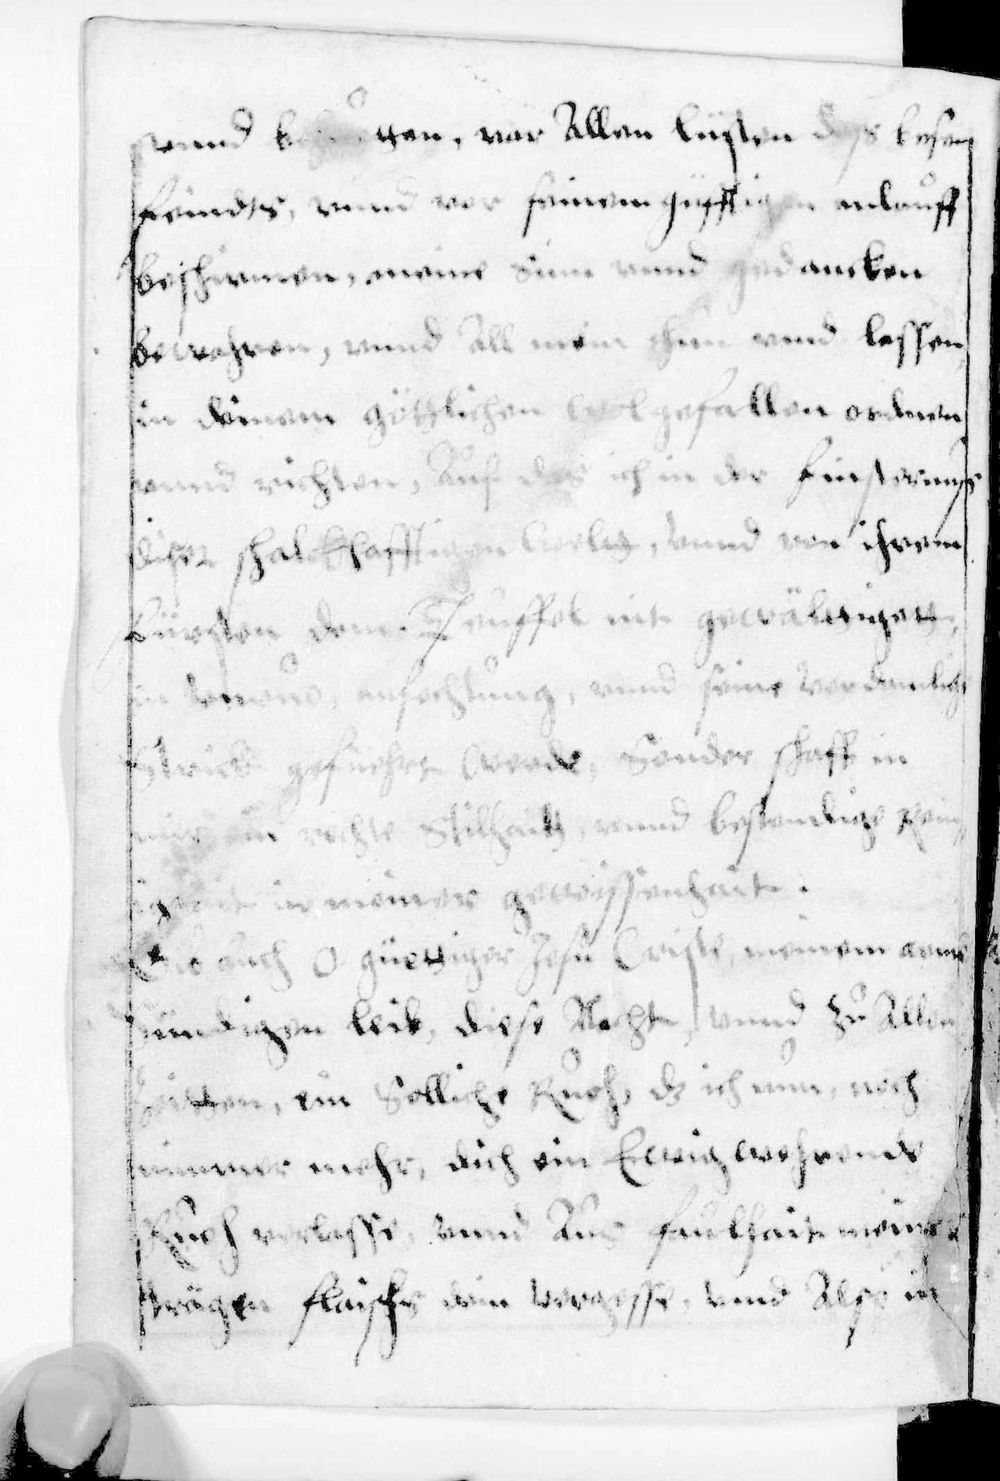 vnnd behüetten, vor Allen lüsten deß besen
feindts, vnnd vor seinem güfftigen anlauff
beschirmen, meine Sinn vnnd gedancken
bewahren, vnnd All mein thun vnnd lassen,
in deinem göttlichen Wolgefallen ordnen
vnnd richten, Auf das ich in der finsternuß
diser schalckhafftigen Weltt, vnnd von ihrem
Fürsten dem Teuffel nit gewältigett,
in anfechtung, vnnd seine verdamlich
Strick gefüehrt werde, Sonder schaff in
mir ein rechte Stillhaitt, vnnd bestendige Rein
igkeit in meiner gewissenhait.
Gib auch O güettiger Jesu Christe, meinem arme
Sündigen leib, diese Nacht, vnnd zu Allen
Zeitten, ein Solliche Ruoh, dz ich nun, noch
nimmer mehr, dich ein Ewig wehrende
Ruoh verlasse, vnnd Aus faulhait meines
trägen flaischs dein vergesse, vnnd Also in